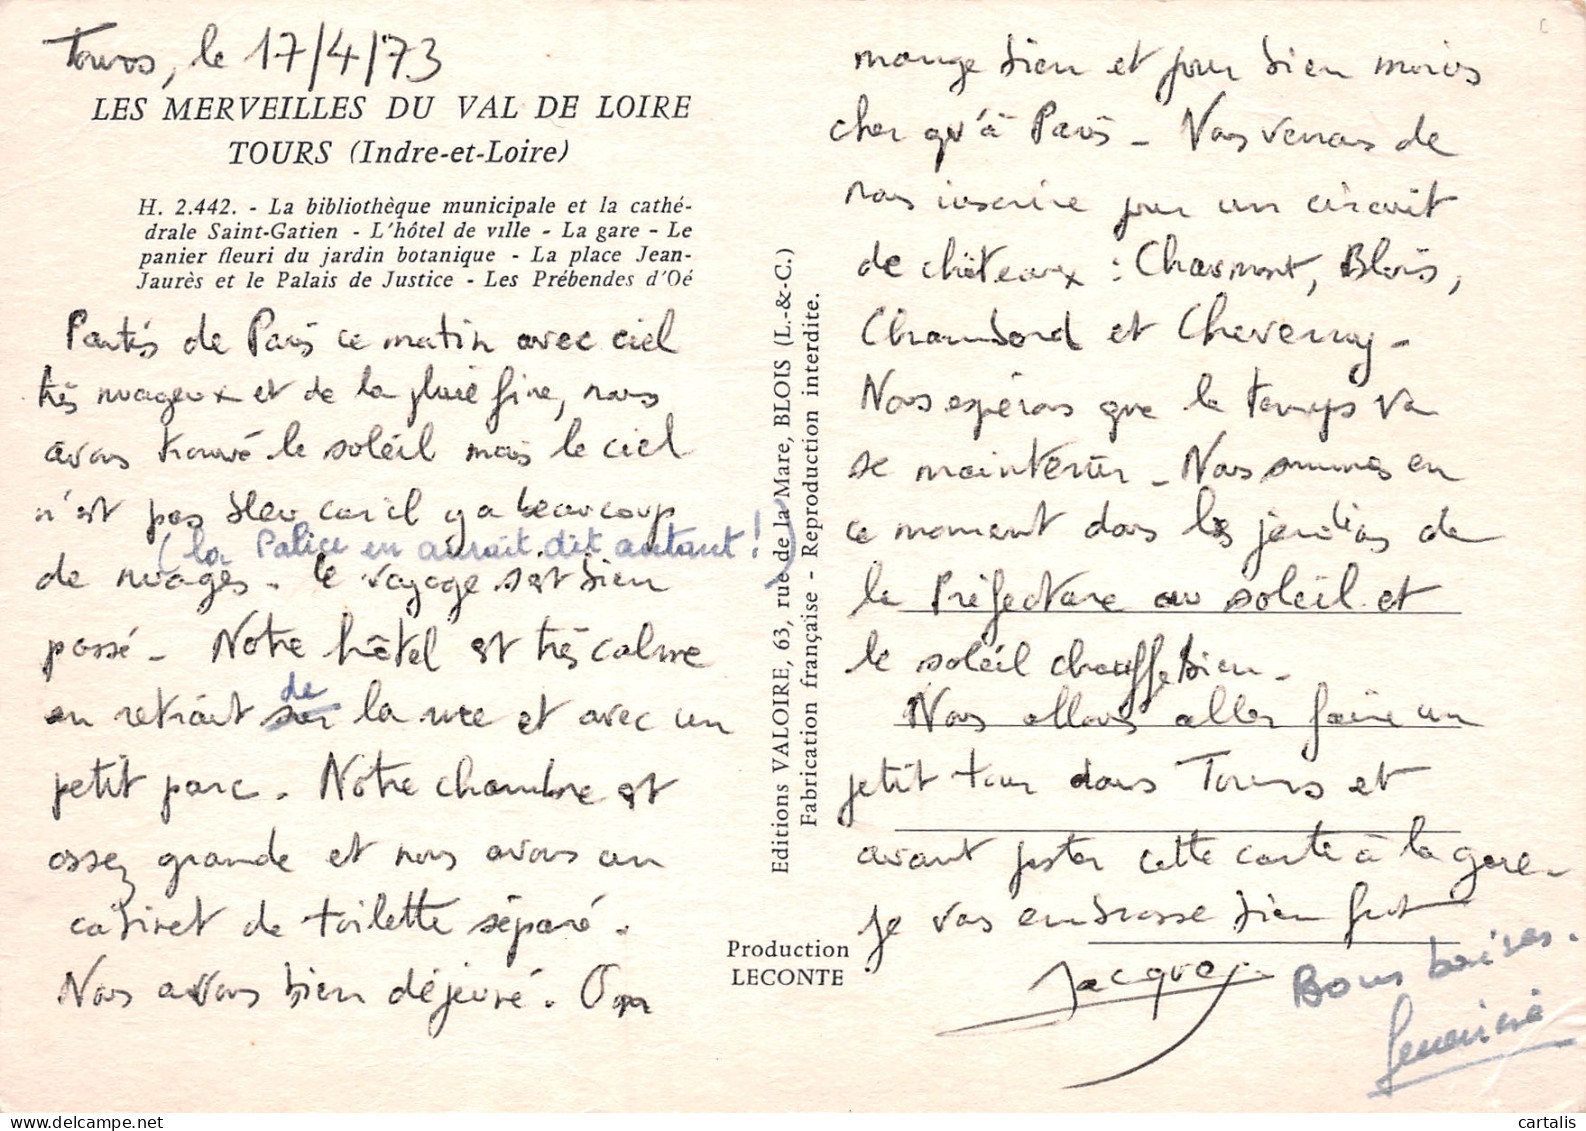 Tours, le 17/4/73
LES MERVEILLES DU VAL DE LOIRE
TOURS (Indre-et-Loire)
H. 2.442. - La bibliothèque municipale et la cathé-
drale Saint-Gatien - L'hôtel de ville - La gare - Le
panier fleuri du jardin botanique - La place Jean-
Jaurès et le Palais de Justice - Les Prébendes d'Oé
Partis de Paris ce matin avec ciel
très nuageux et de la pluie fine, nous
avons trouvé le soleil mais le ciel
n'est pas bleu car il y a beaucoup
(la Palice en aurait dit autant !)
de nuages. Le voyage s'est bien
passé - Notre hôtel est très calme
en retrait sur de la rue et avec un
petit parc. Notre chambre est
assez grande et nous avons un
cabinet de toilette séparé.
Nous avons bien déjeuné. On
Editions VALOIRE, 63, rue de la Mare, BLOIS (L.-&-C.)
Fabrication française - Reproduction interdite.
Production
LECONTE
mange bien et pour bien moins
cher qu'à Paris - Nous venons de
nous inscrire pour un circuit
de châteaux : Chaumont, Blois,
Chambord et Cheverny -
Nous espérons que le temps va
se maintenir - Nous sommes en
ce moment dans les jardins de
la Préfecture au soleil et
le soleil chauffe bien -
Nous allons aller faire un
petit tour dans Tours et
avant poster cette carte à la gare -
Je vous embrasse bien fort
Jacques
Bons baisers.
Geneviève
c
cartalis